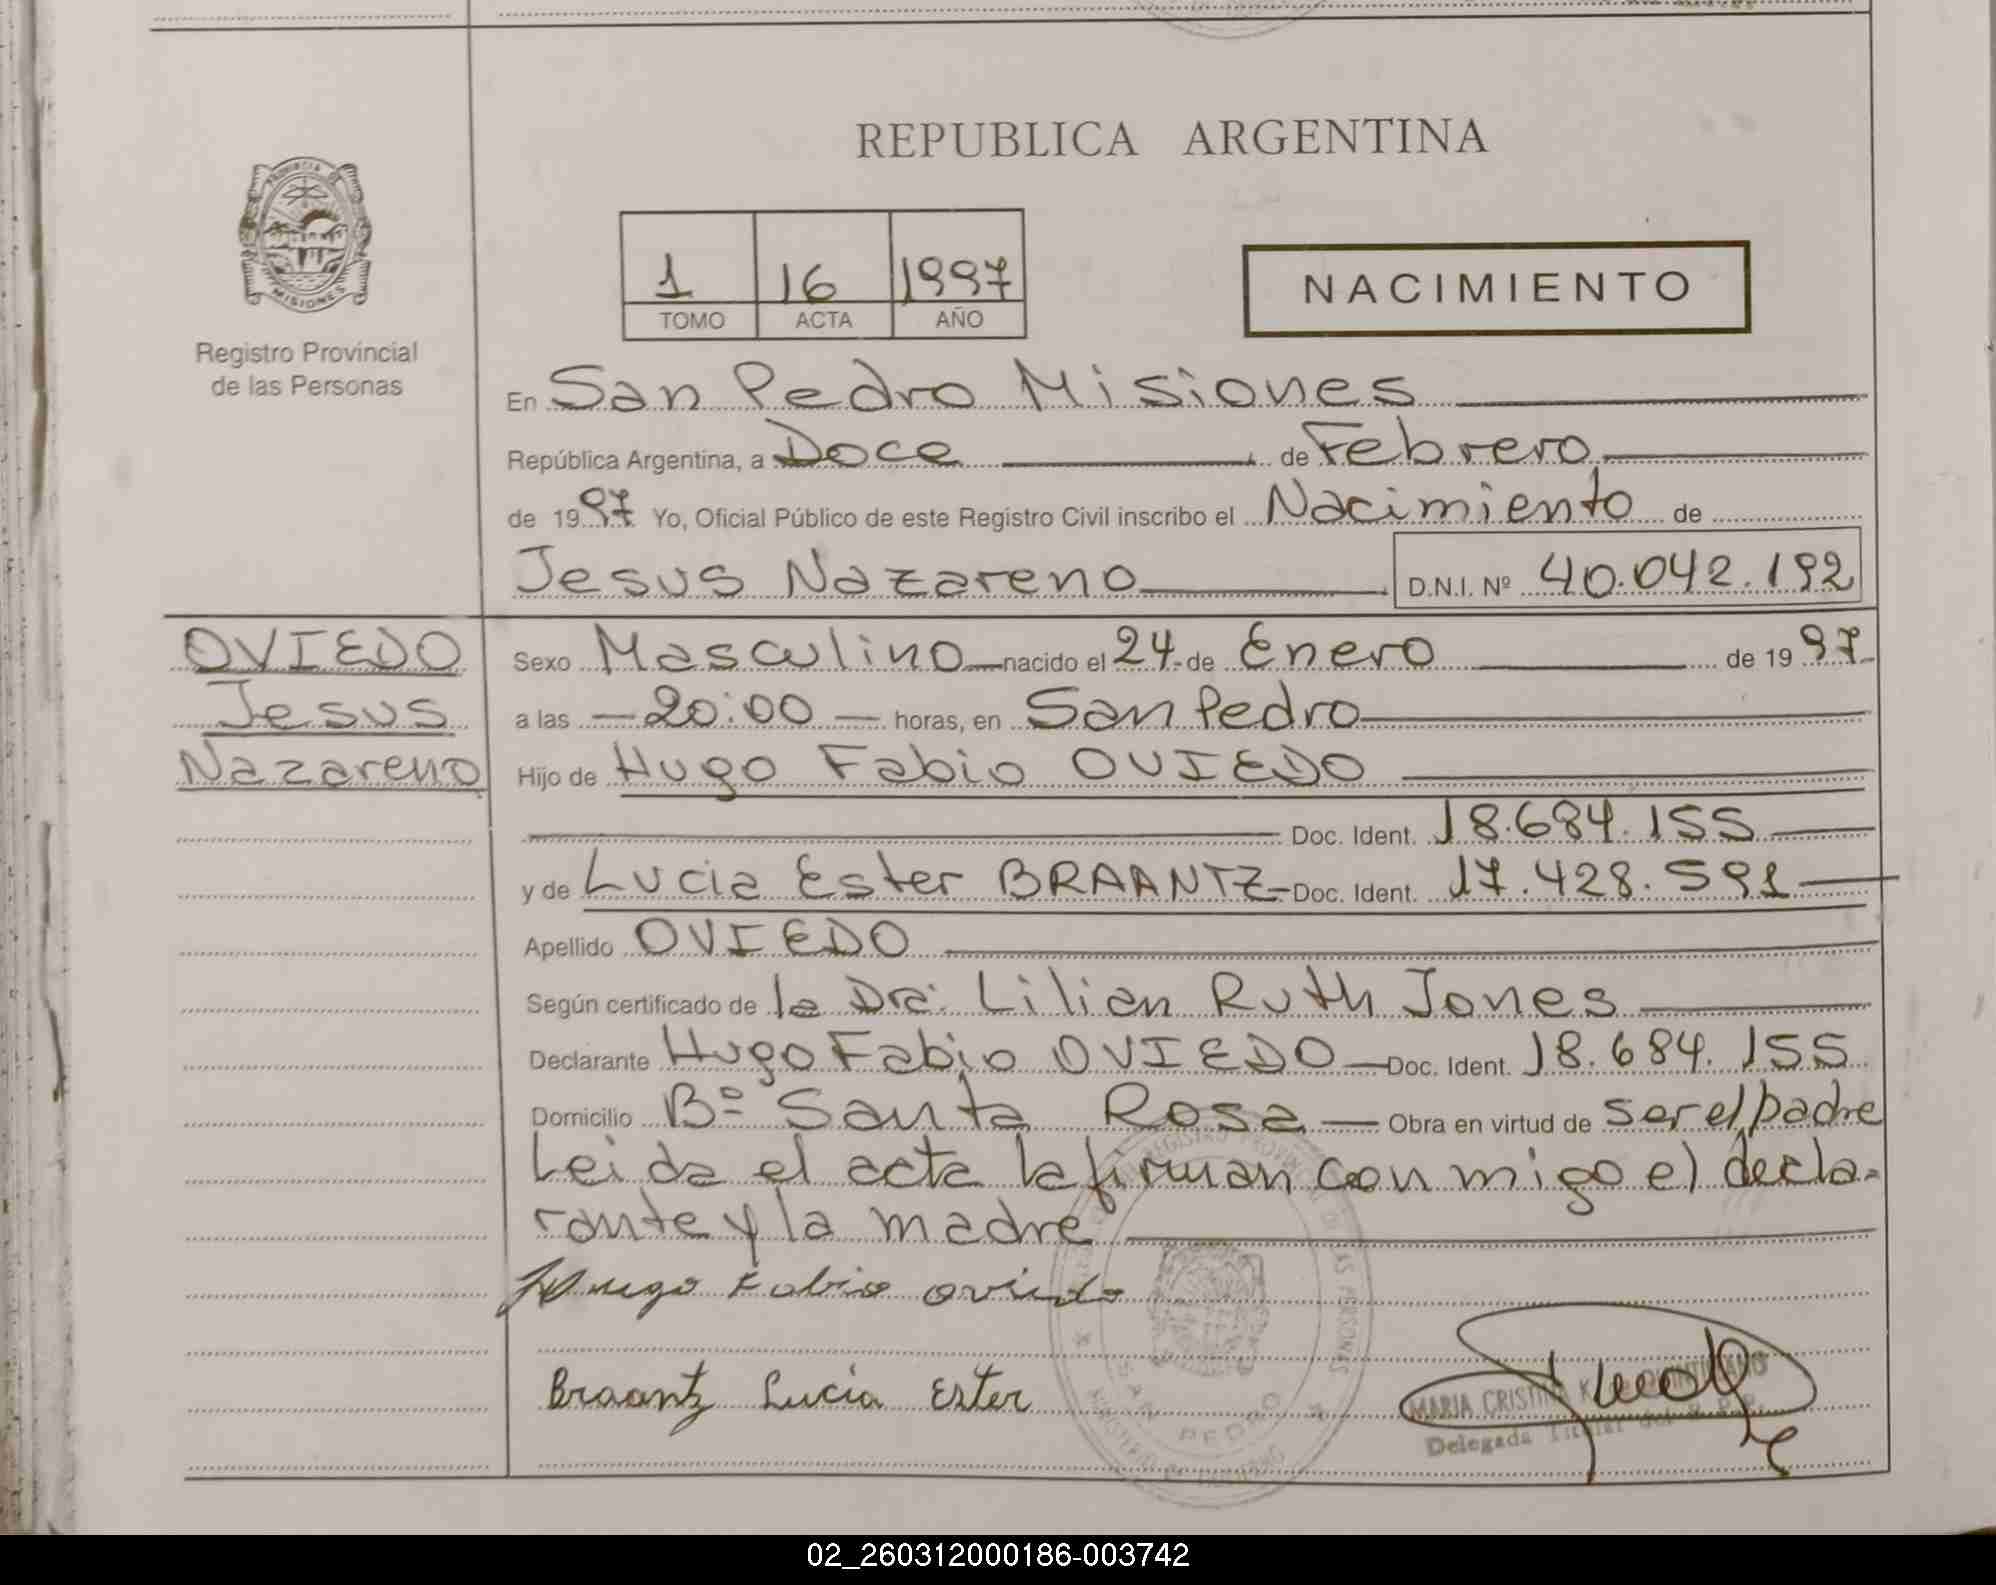 REPUBLICA ARGENTINA
PROVINCIA DE
MISIONES
Registro Provincial
de las Personas
1 16 1997
TOMO ACTA AÑO
NACIMIENTO
En San Pedro Misiones
República Argentina, a Doce de Febrero
de 1997 Yo, Oficial Público de este Registro Civil inscribo el Nacimiento de
Jesus Nazareno D.N.I. Nº 40.042.192
OVIEDO
Jesus
Nazareno
Sexo Masculino nacido el 24 de Enero de 1997
a las 20:00 horas, en San Pedro
Hijo de Hugo Fabio OVIEDO
Doc. Ident. 18.684.155
y de Lucia Ester BRAANTZ Doc. Ident. 17.428.591
Apellido OVIEDO
Según certificado de la Dra. Lilian Ruth Jones
Declarante Hugo Fabio OVIEDO Doc. Ident. 18.684.155
Domicilio Bº Santa Rosa Obra en virtud de ser el padre
Leida el acta la firman con migo el decla-
rante y la madre
Hugo Fabio Oviedo
Braantz Lucia Ester
REGISTRO PROVINCIAL DE LAS PERSONAS
SAN PEDRO
MARIA CRISTINA
Delegada Titular del R.P.P.
02_260312000186-003742